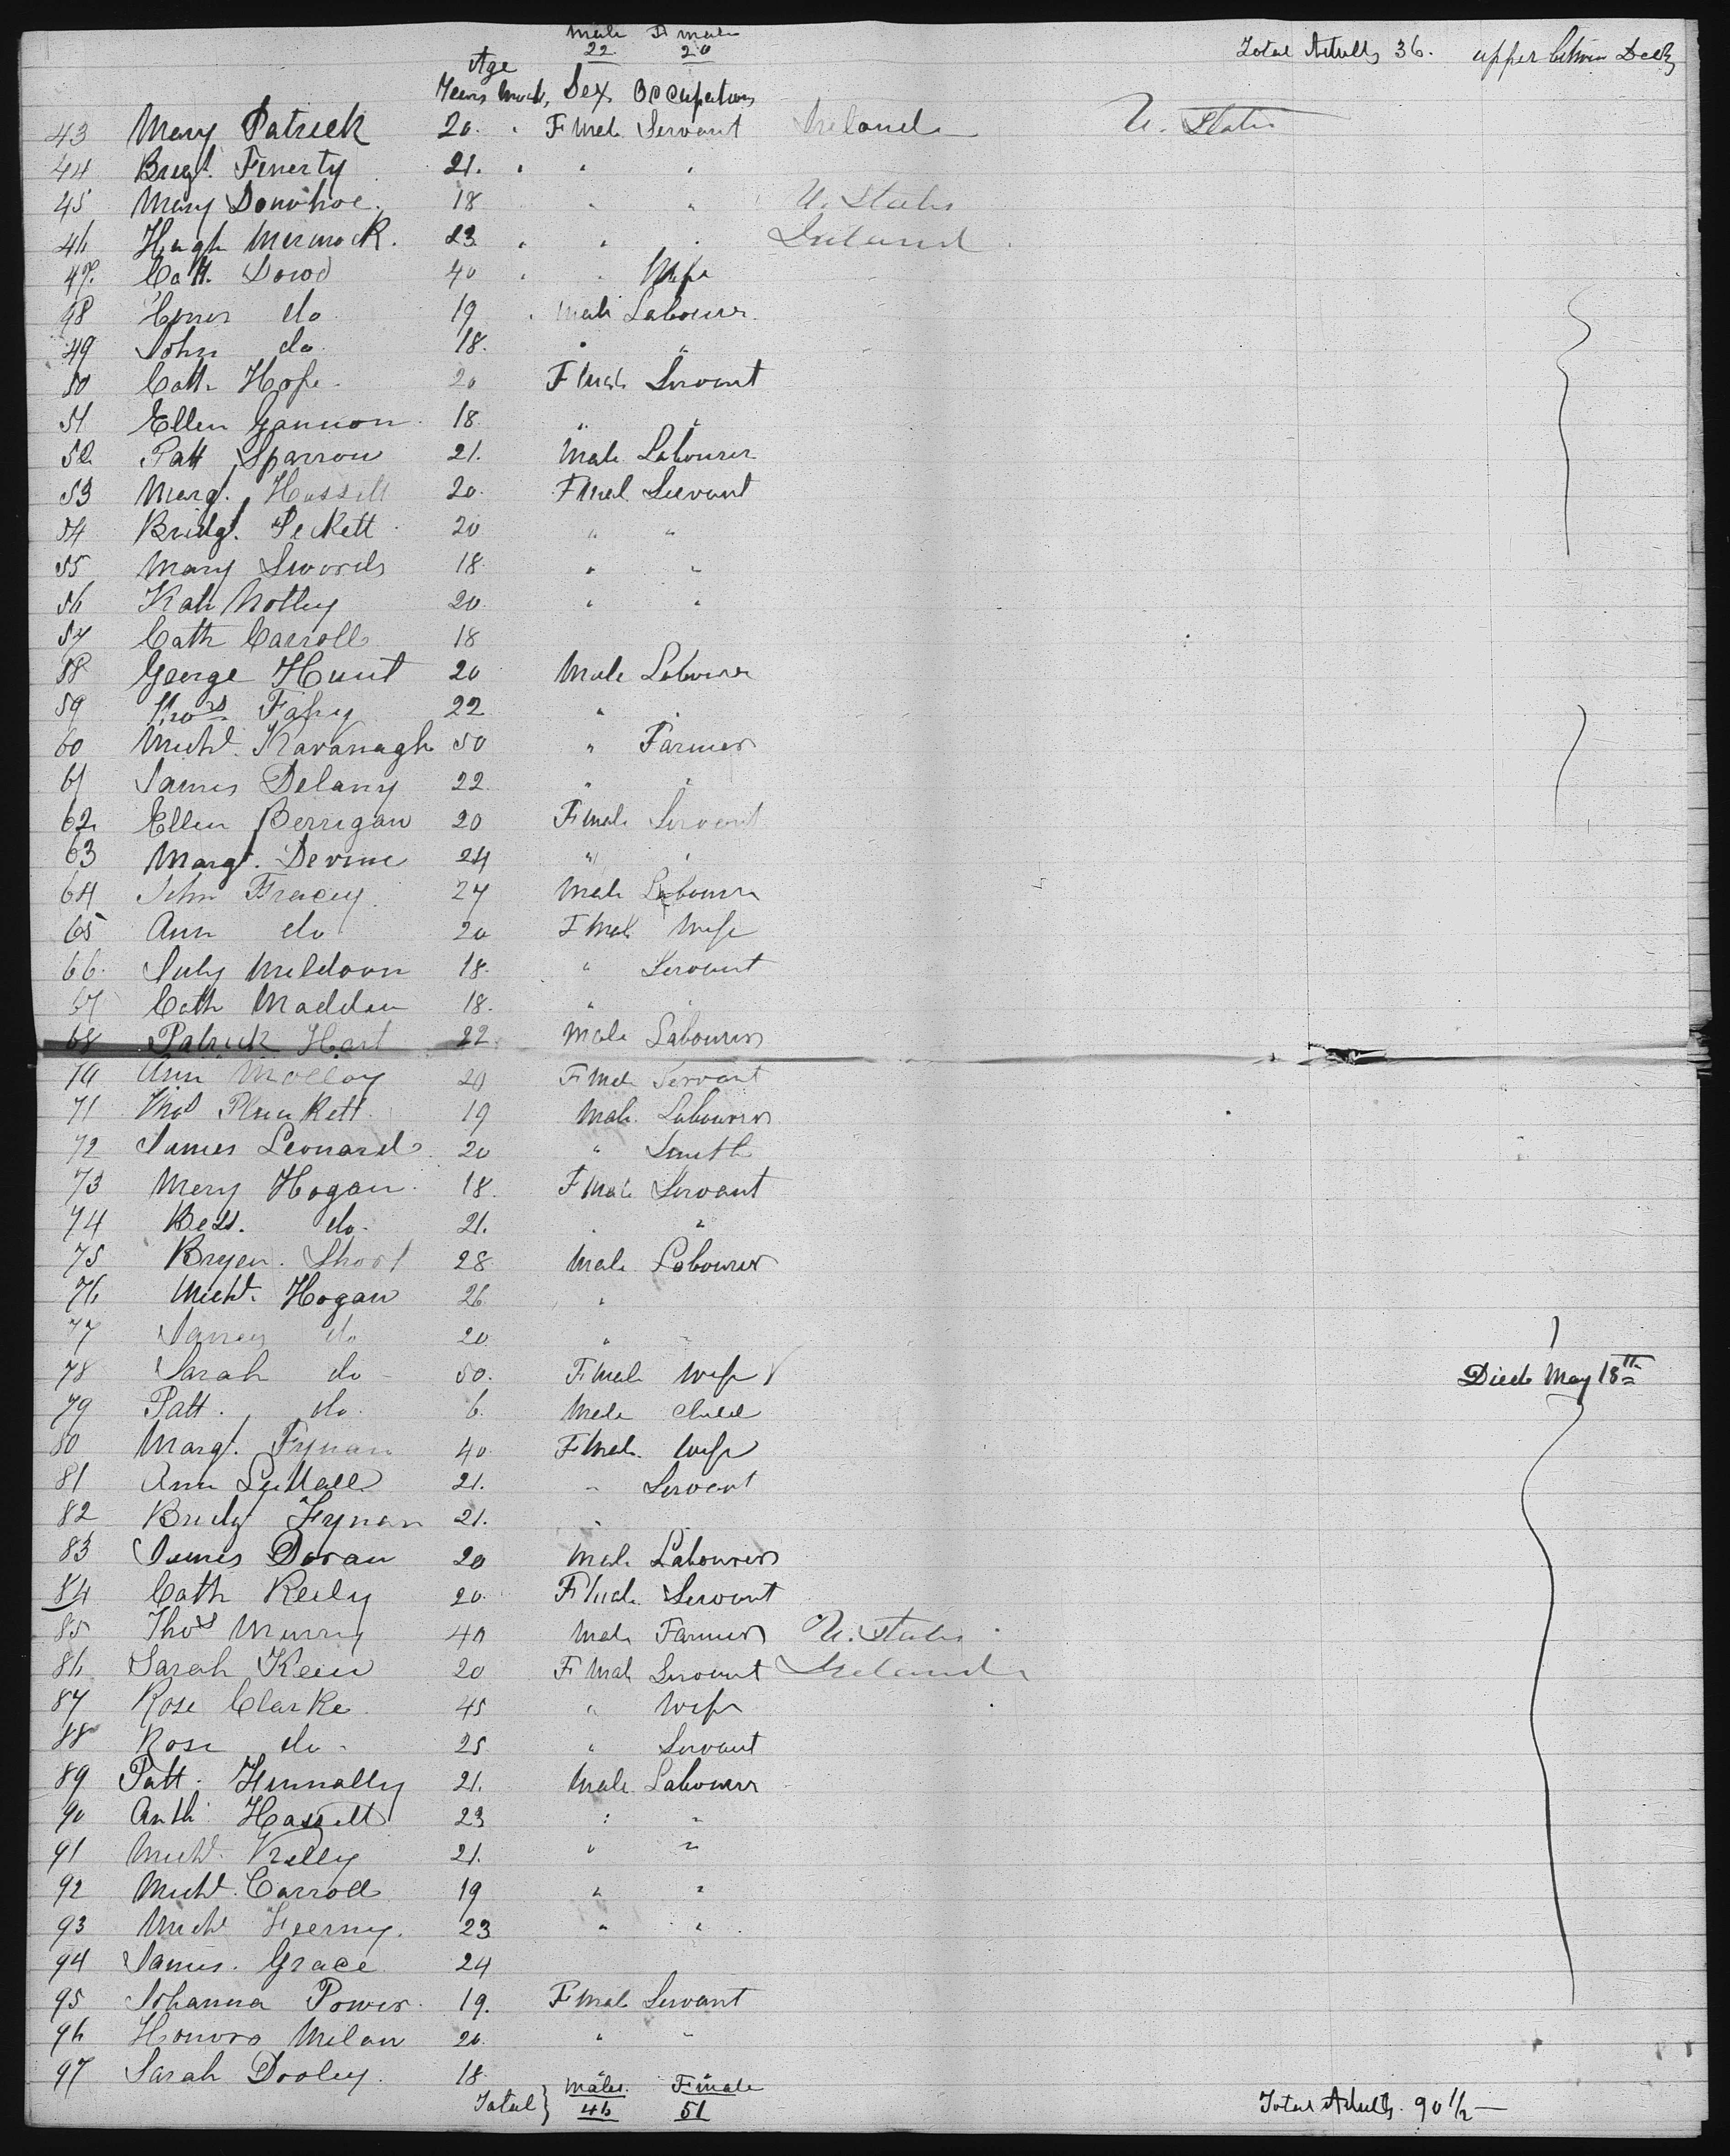 Male Fmale
22 20
Total Adults 36. upper betwen Decks
Age
Years Mnth, Sex Occupation
43 Mary Patrick 20. " Fmale Servant Ireland U. States
44 Bridgt. Finerty 21. " " "
45 Mary Donohoe. 18 " " U. States
46 Hugh 23 " " " Ireland
47. Cath. Dowd 40 " " Wife
48 do 19 " Male Labourer
49 John do 18. " "
50 Cath Hope. 20 Fmale Servant
51 Ellen Gannon. 18 " "
52 Patt Sparrow 21. Male Labourer
53 Margt. Hassett 20. Fmale Servant
54 Bridgt. Peckett. 20 " "
55 Mary Swords 18 " "
56 Kate 20 " "
57 Cath Carroll 18
58 George Hunt 20 Male Labourer
59 Thos Fahy 22 " "
60 Michl. Kavanagh 50 " Farmer
61 James Delany 22 " "
62 Ellen Berrigan 20 Fmale Servant
63 Margt. Devine 24 " "
64 John Tracey. 24 Male Labourer
65 Ann do 20 Fmale Wife
66. July Muldoon 18. " Servant
67 Cath Madden 18. " "
68 Patrick Hart 22. Male Labourer
70 Ann Molloy 20 Fmale Servant
71 Thos Plunkett. 19 Male Labourer
72 James Leonard 20 " Smith
73 Mary Hogan. 18. Fmale Servant
74 Bess. do. 21. " "
75 Bryen. Short 28 Male Labourer
76 Michl. Hogan 26 "
77 James do 20 " "
78 Sarah do 50. Fmale Wife Died May 18th
79 Patt. do. 6. Male Child
80 Margt. Fynan 40 Fmale Wife
81 Ann Luttall 21. " Servant
82 Bridgt Fynan 21. "
83 James Doran 20 Male Labourer
84 Cath Reily 20. Fmale Servant
85 Thos Murry 40 Male Farmer U. States
86 Sarah Keen 20 Fmale Servant Ireland
87 Rose Clarke. 45 " Wife
88 Rose do. 25 " Servant
89 Patt. Hennally 21. Male Labourer
90 Anth Hassett 23 " "
91 Michl. Kelly 21. " "
92 Michl. Carroll 19 " "
93 Michl 23 " "
94 James. Grace 24
95 Johanna Power. 19. Fmale Servant
96 Honora Milan 20. " "
97 Sarah Dooley. 18.
Total } Males. Fmale
46 51
Total Adults. 90 1/2